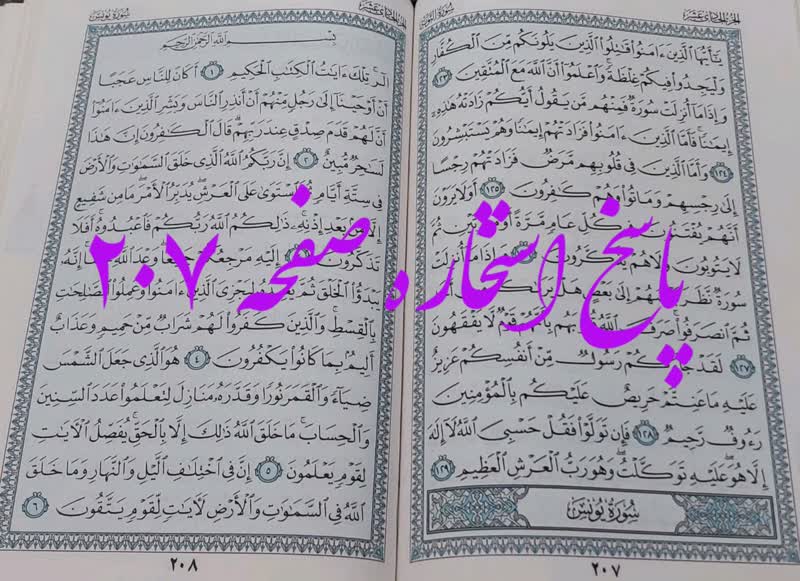 الجزء الحادي عشر
سورة التوبة
يَٰٓأَيُّهَا ٱلَّذِينَ ءَامَنُوا۟ قَٰتِلُوا۟ ٱلَّذِينَ يَلُونَكُم مِّنَ ٱلْكُفَّارِ
وَلْيَجِدُوا۟ فِيكُمْ غِلْظَةً ۚ وَٱعْلَمُوٓا۟ أَنَّ ٱللَّهَ مَعَ ٱلْمُتَّقِينَ ١٢٣
وَإِذَا مَآ أُنزِلَتْ سُورَةٌ فَمِنْهُم مَّن يَقُولُ أَيُّكُمْ زَادَتْهُ هَٰذِهِۦٓ
إِيمَٰنًا ۚ فَأَمَّا ٱلَّذِينَ ءَامَنُوا۟ فَزَادَتْهُمْ إِيمَٰنًا وَهُمْ يَسْتَبْشِرُونَ
١٢٤ وَأَمَّا ٱلَّذِينَ فِى قُلُوبِهِم مَّرَضٌ فَزَادَتْهُمْ رِجْسًا
إِلَىٰ رِجْسِهِمْ وَمَاتُوا۟ وَهُمْ كَٰفِرُونَ ١٢٥ أَوَلَا يَرَوْنَ
أَنَّهُمْ يُفْتَنُونَ كُلِّ عَامٍ مَّرَّةً أَوْ مَرَّتَيْنِ ثُمَّ
لَا يَتُوبُونَ وَلَا هُمْ يَذَّكَّرُونَ وَإِذَا مَآ أُنزِلَتْ
سُورَةٌ نَّظَرَ بَعْضُهُمْ إِلَىٰ بَعْضٍ هَلْ يَرَىٰكُم
ثُمَّ ٱنصَرَفُوا۟ ۚ صَرَفَ ٱللَّهُ قُلُوبَهُم بِأَنَّهُمْ قَوْمٌ لَّا يَفْقَهُونَ
١٢٧ لَقَدْ جَآءَكُمْ رَسُولٌ مِّنْ أَنفُسِكُمْ عَزِيزٌ
عَلَيْهِ مَا عَنِتُّمْ حَرِيصٌ عَلَيْكُم بِٱلْمُؤْمِنِينَ
رَءُوفٌ رَّحِيمٌ ١٢٨ فَإِن تَوَلَّوْا۟ فَقُلْ حَسْبِىَ ٱللَّهُ لَآ إِلَٰهَ
إِلَّا هُوَ ۖ عَلَيْهِ تَوَكَّلْتُ ۖ وَهُوَ رَبُّ ٱلْعَرْشِ ٱلْعَظِيمِ ١٢٩
سُورَةُ يُونُسَ
٢٠٧
الجزء الحادي عشر
سورة يونس
بِسْمِ ٱللَّهِ ٱلرَّحْمَٰنِ ٱلرَّحِيمِ
الٓر ۚ تِلْكَ ءَايَٰتُ ٱلْكِتَٰبِ ٱلْحَكِيمِ ١ أَكَانَ لِلنَّاسِ عَجَبًا
أَنْ أَوْحَيْنَآ إِلَىٰ رَجُلٍ مِّنْهُمْ أَنْ أَنذِرِ ٱلنَّاسَ وَبَشِّرِ ٱلَّذِينَ ءَامَنُوٓا۟
أَنَّ لَهُمْ قَدَمَ صِدْقٍ عِندَ رَبِّهِمْ ۗ قَالَ ٱلْكَٰفِرُونَ إِنَّ هَٰذَا
لَسَٰحِرٌ مُّبِينٌ ٢ إِنَّ رَبَّكُمُ ٱللَّهُ ٱلَّذِى خَلَقَ ٱلسَّمَٰوَٰتِ وَٱلْأَرْضَ
فِى سِتَّةِ أَيَّامٍ ثُمَّ ٱسْتَوَىٰ عَلَى ٱلْعَرْشِ ۖ يُدَبِّرُ ٱلْأَمْرَ ۖ مَا مِن شَفِيعٍ
إِلَّا مِنۢ بَعْدِ إِذْنِهِۦ ۚ ذَٰلِكُمُ ٱللَّهُ رَبُّكُمْ فَٱعْبُدُوهُ ۚ أَفَلَا
تَذَكَّرُونَ إِلَيْهِ مَرْجِعُكُمْ جَمِيعًا ۖ وَعْدَ ٱللَّهِ إِنَّهُۥ
يَبْدَؤُا۟ ٱلْخَلْقَ ثُمَّ يُعِيدُهُۥ لِيَجْزِىَ ٱلَّذِينَ ءَامَنُوا۟ وَعَمِلُوا۟ ٱلصَّٰلِحَٰتِ
بِٱلْقِسْطِ ۚ وَٱلَّذِينَ كَفَرُوا۟ لَهُمْ شَرَابٌ مِّنْ حَمِيمٍ وَعَذَابٌ
أَلِيمٌۢ بِمَا كَانُوا۟ يَكْفُرُونَ ٤ هُوَ ٱلَّذِى جَعَلَ ٱلشَّمْسَ
ضِيَآءً وَٱلْقَمَرَ نُورًا وَقَدَّرَهُۥ مَنَازِلَ لِتَعْلَمُوا۟ عَدَدَ ٱلسِّنِينَ
وَٱلْحِسَابَ ۚ مَا خَلَقَ ٱللَّهُ ذَٰلِكَ إِلَّا بِٱلْحَقِّ ۚ يُفَصِّلُ ٱلْءَايَٰتِ
لِقَوْمٍ يَعْلَمُونَ ٥ إِنَّ فِى ٱخْتِلَٰفِ ٱلَّيْلِ وَٱلنَّهَارِ وَمَا خَلَقَ
ٱللَّهُ فِى ٱلسَّمَٰوَٰتِ وَٱلْأَرْضِ لَءَايَٰتٍ لِّقَوْمٍ يَتَّقُونَ ٦
٢٠٨
پاسخ استخاره صفحه ۲۰۷